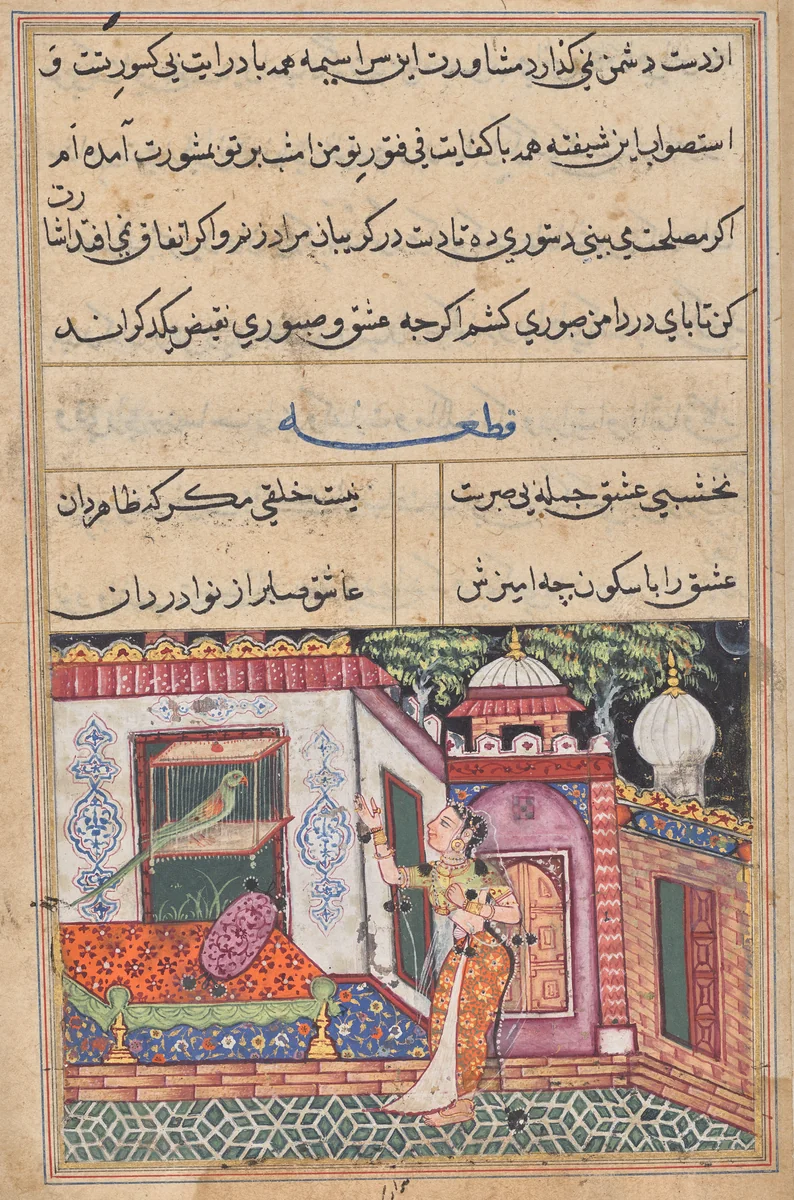 از دست دشمن نمی گذارد مشاورت این سراسیمه همه با درایت بی کسور تست و
استصواب این شیفته همه با کفایت فی فتور تو من امشب بر تو بمشورت آمده ام
اکر مصلحت می بینی دستوری ده تا دست در کریبان مراد زنم و اکر اتفاق نمی افتد اشارت
کن تا بای در دامن صبوری کشم اکرجه عشق و صبوری نقیض یکدکراند
قطعه
نخشبی عشق جمله بی صبرست
نیست خلقی مکر که ظاهر دان
عشق را با سکون چه امیزش
عاشق صابر از نوادر دان